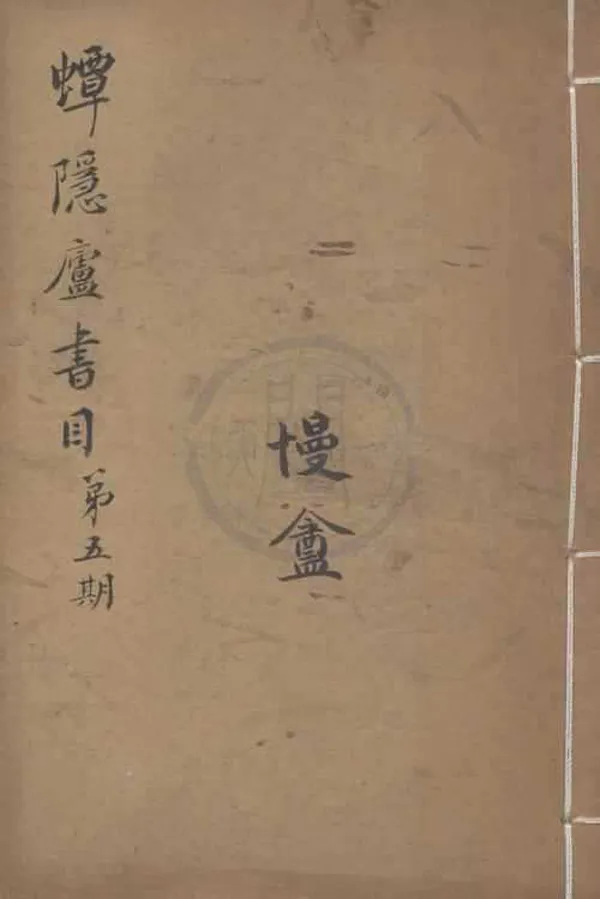 蟫隱廬書目第五期
慢盦